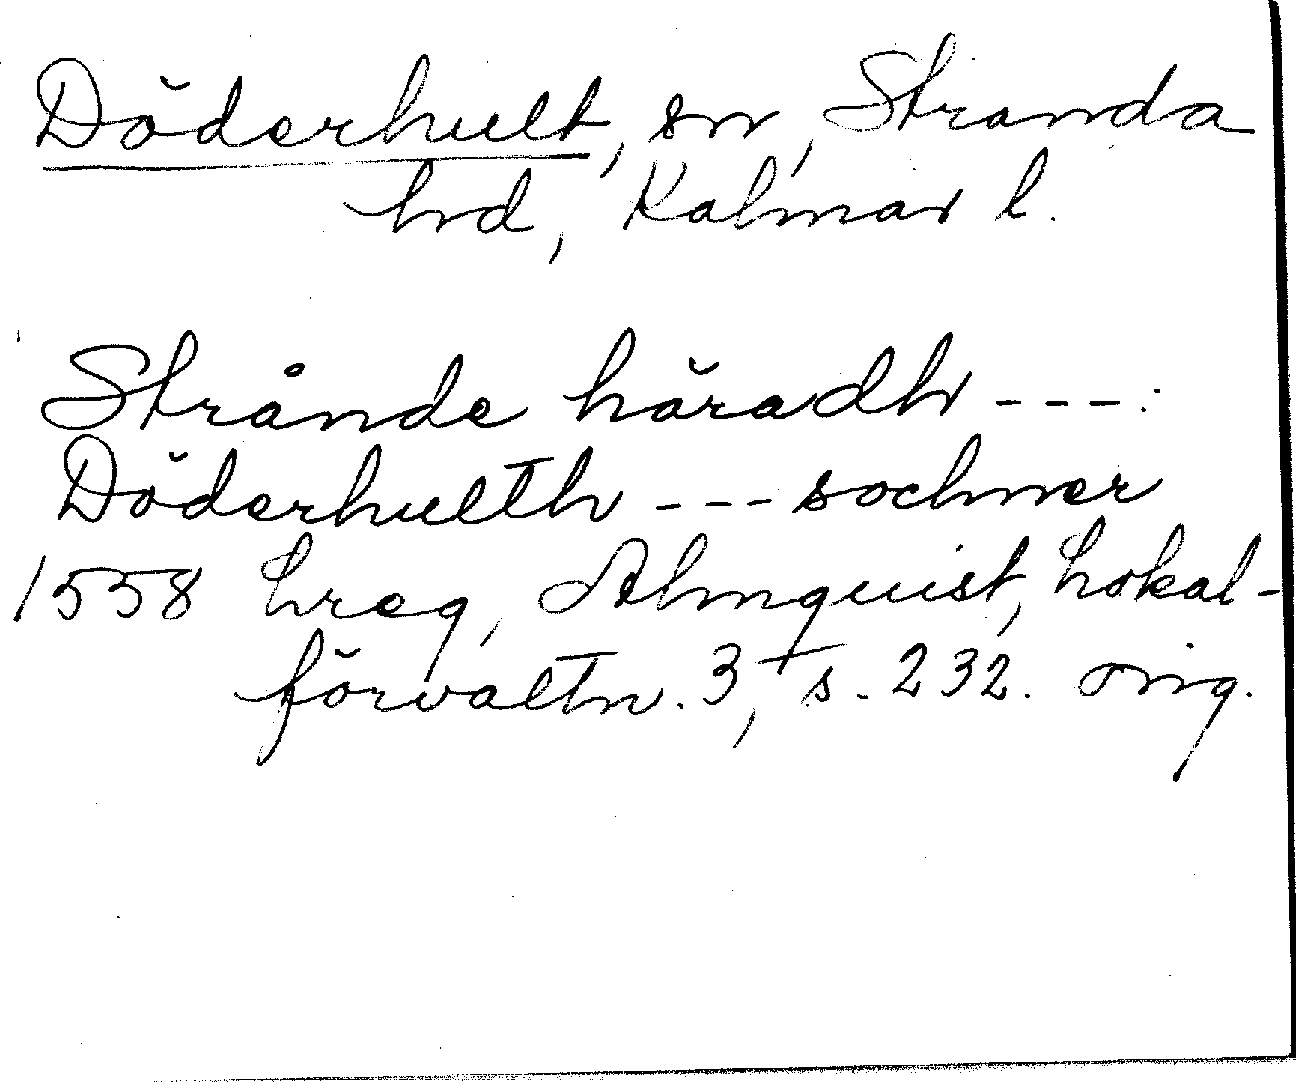 Döderhult, sn, Stranda
hd, Kalmar l.
Strånde häradh ---.
Döderhulth --- sochner
1558 Lreg, Almquist, Lokal-
förvaltn. 3, s. 232. orig.